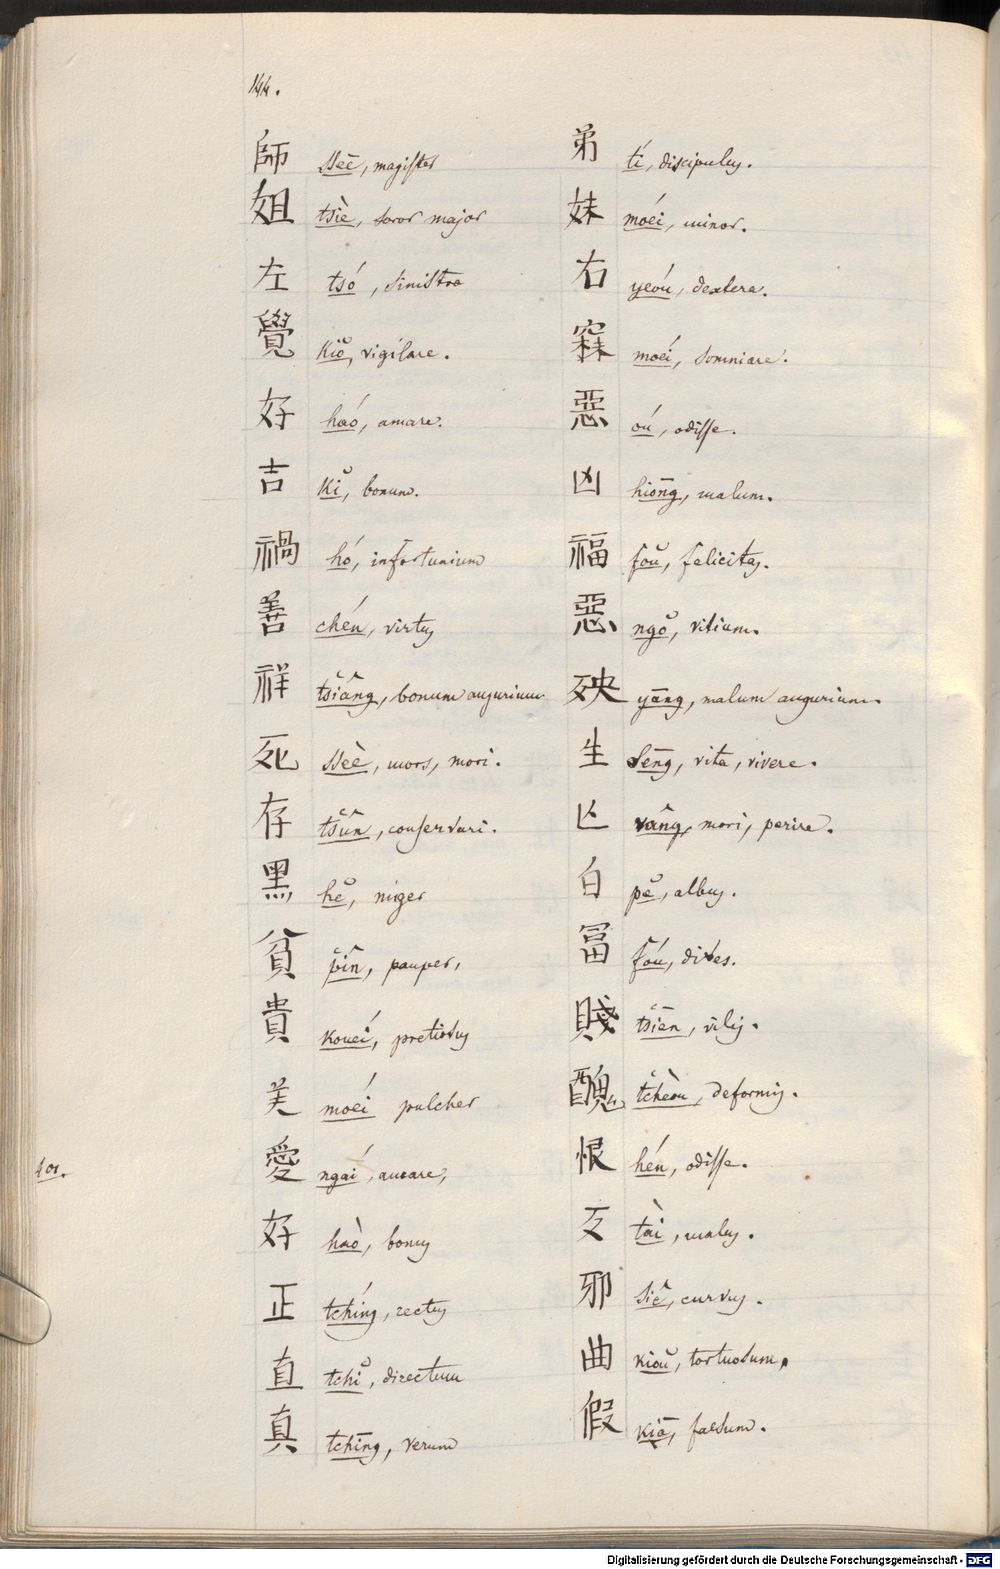 144.
師 ssēe, magister 弟 tí, discipulus.
姐 tsiè, soror major 妹 móei, minor.
左 tsó, sinistra 右 yeóu, dextera.
覺 Kiŏ, vigilare. 寐 moéi, somniare.
好 haó, amare. 惡 oú, odisse.
吉 Kĭ, bonum. 凶 hiōng, malum.
禍 hó, infortunium 福 foŭ, felicitas.
善 chén, virtus 惡 ngŏ, vitium.
祥 tsiâng, bonum augurium 殃 yāng, malum augurium.
死 ssèe, mors, mori. 生 sēng, vita, vivere.
存 tsûn, conservari. 亾 vâng, mori, perire.
黑 hĕ, niger 白 pĕ, albus.
貧 pîn, pauper, 冨 fóu, dives.
貴 Koueí, pretiosus 賤 tsiēn, vilis.
美 moéi pulcher 醜 tcheòu, deformis.
401.
愛 ngaí, amare, 恨 hén, odisse.
好 haò, bonus 歹 tài, malus.
正 tchíng, rectus 邪 siê, curvus.
直 tchĭ, directum 曲 kioŭ, tortuosum.
真 tchīng, verum 假 kiā, falsum.
Digitalisierung gefördert durch die Deutsche Forschungsgemeinschaft - DFG